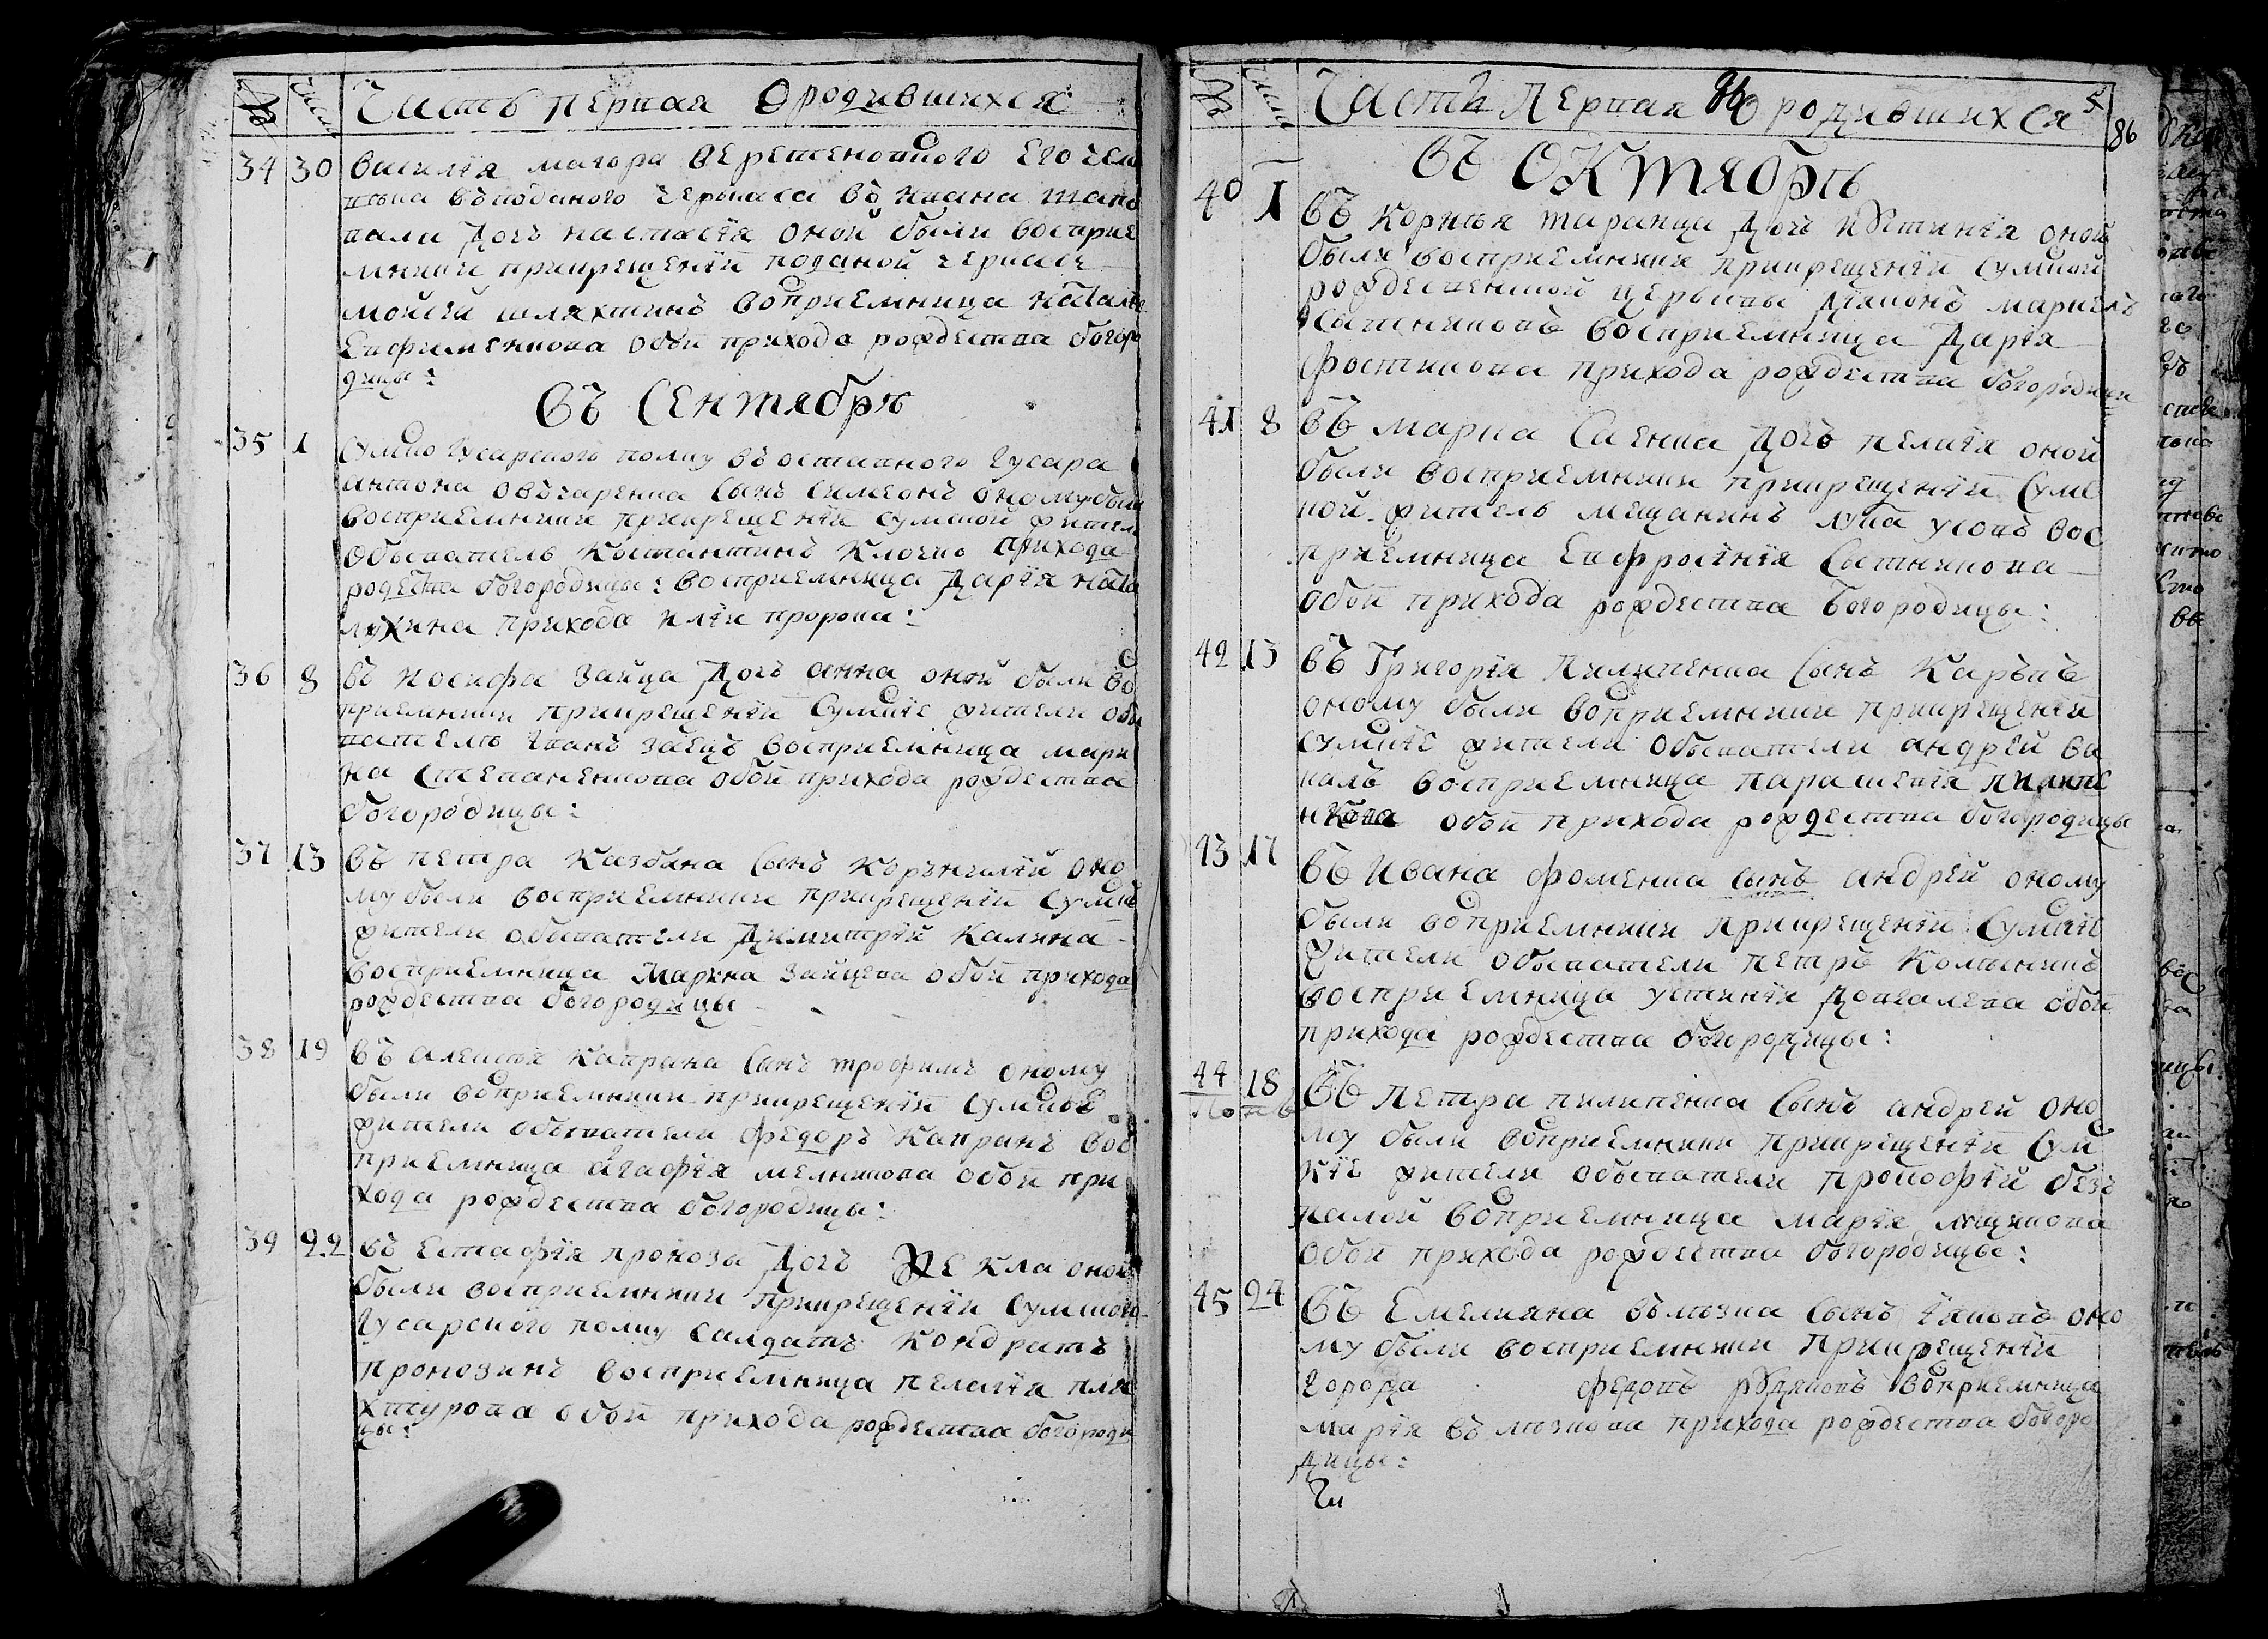 Часть первая О родившихся
34 30 Василия маиора Веретеновского его челя
въ подданого черкаса въ Ивана Шапо
вала дочь настасія оной были воспріе
мники прикрещеніи поданой черкасъ
мойсей шляхтинъ восприемница Натал
Еефименкова обои прихода рождества богоро
дицы:
Въ Сентябрѣ
35 1 Сумско гусарского полку въ оставного гусара
антона овъчаренка сынъ симеонъ оному были
восприемники прикрещеніи сумской житель
обыватель Костантинъ Клочко прихода
родества богородицы: восприемница Дарія
прихода иліи пророка:
36 8 въ иосифа зайца дочь анна оной были вос
приемники прикрещеніи сумскіе жители обы
ватель иванъ заецъ восприемница мари
на Степаненкова обои прихода рождества
богородицы:
37 13 въ петра Казбана сынъ Корънилій оно
му были восприемники прикрещеніи сумскіе
жители обыватели Димитрій Калина
восприемница Марина зайцева обои прихода
рождества богородицы
38 19 въ алексѣя Капрана сынъ трофимъ оному
были восприемники прикрещеніи сумские
жители обыватели федоръ Капранъ вос
приемница агафія мельникова обои при
хода рождества богородицы:
39 22 въ Естафія пронозы дочь Ѳекла оной
были восприемники прикрещеніи сумского
гусарского полку салдатъ Кондратъ
пронозинъ восприемница пелагія пля
хтурова обои прихода рождества богороди
цы:
Часть Первая О родившихся
86
Въ Октябрѣ
40 1 Въ Корнѣя таранца дочь иѵстинія оной
были восприемники прикрещеніи сумской
рождественской церьквы діаконъ маркелъ
восприемница Дарія
фостикова прихода рождества богородицы
41 8 Въ марка Саенка дочь пелагія оной
были восприемники прикрещеніи сумс
кой житель мещанинъ лука усовъ вос
приемница Еиѳросинія Сотникова
обои прихода рождества богородицы:
42 13 Въ Григорія пилипенка сынъ Каръпъ
оному были восприемники прикрещеніи
сумскіе жители обыватели андрей
восприемница парасковія пилипе
нкова обои прихода рождества богородицы
43 17 Въ Ивана фоменка сынъ андрей оному
были восприемники прикрещеніи сумскіе
жители обыватели петръ
восприемница устинія Довгалева обои
прихода рождества богородицы:
44 18 Въ Петра пилипенка сынъ андрей оно
му были восприемники прикрещеніи сумс
кіе жители обыватели прокофій безъ
палой восприемница марія
обои прихода рождества богородицы:
45 24 Въ Емелияна вълезка сынъ іяковъ оно
му были восприемники прикрещеніи
города федотъ восприемница
марія прихода рождества богоро
дицы:
Чи